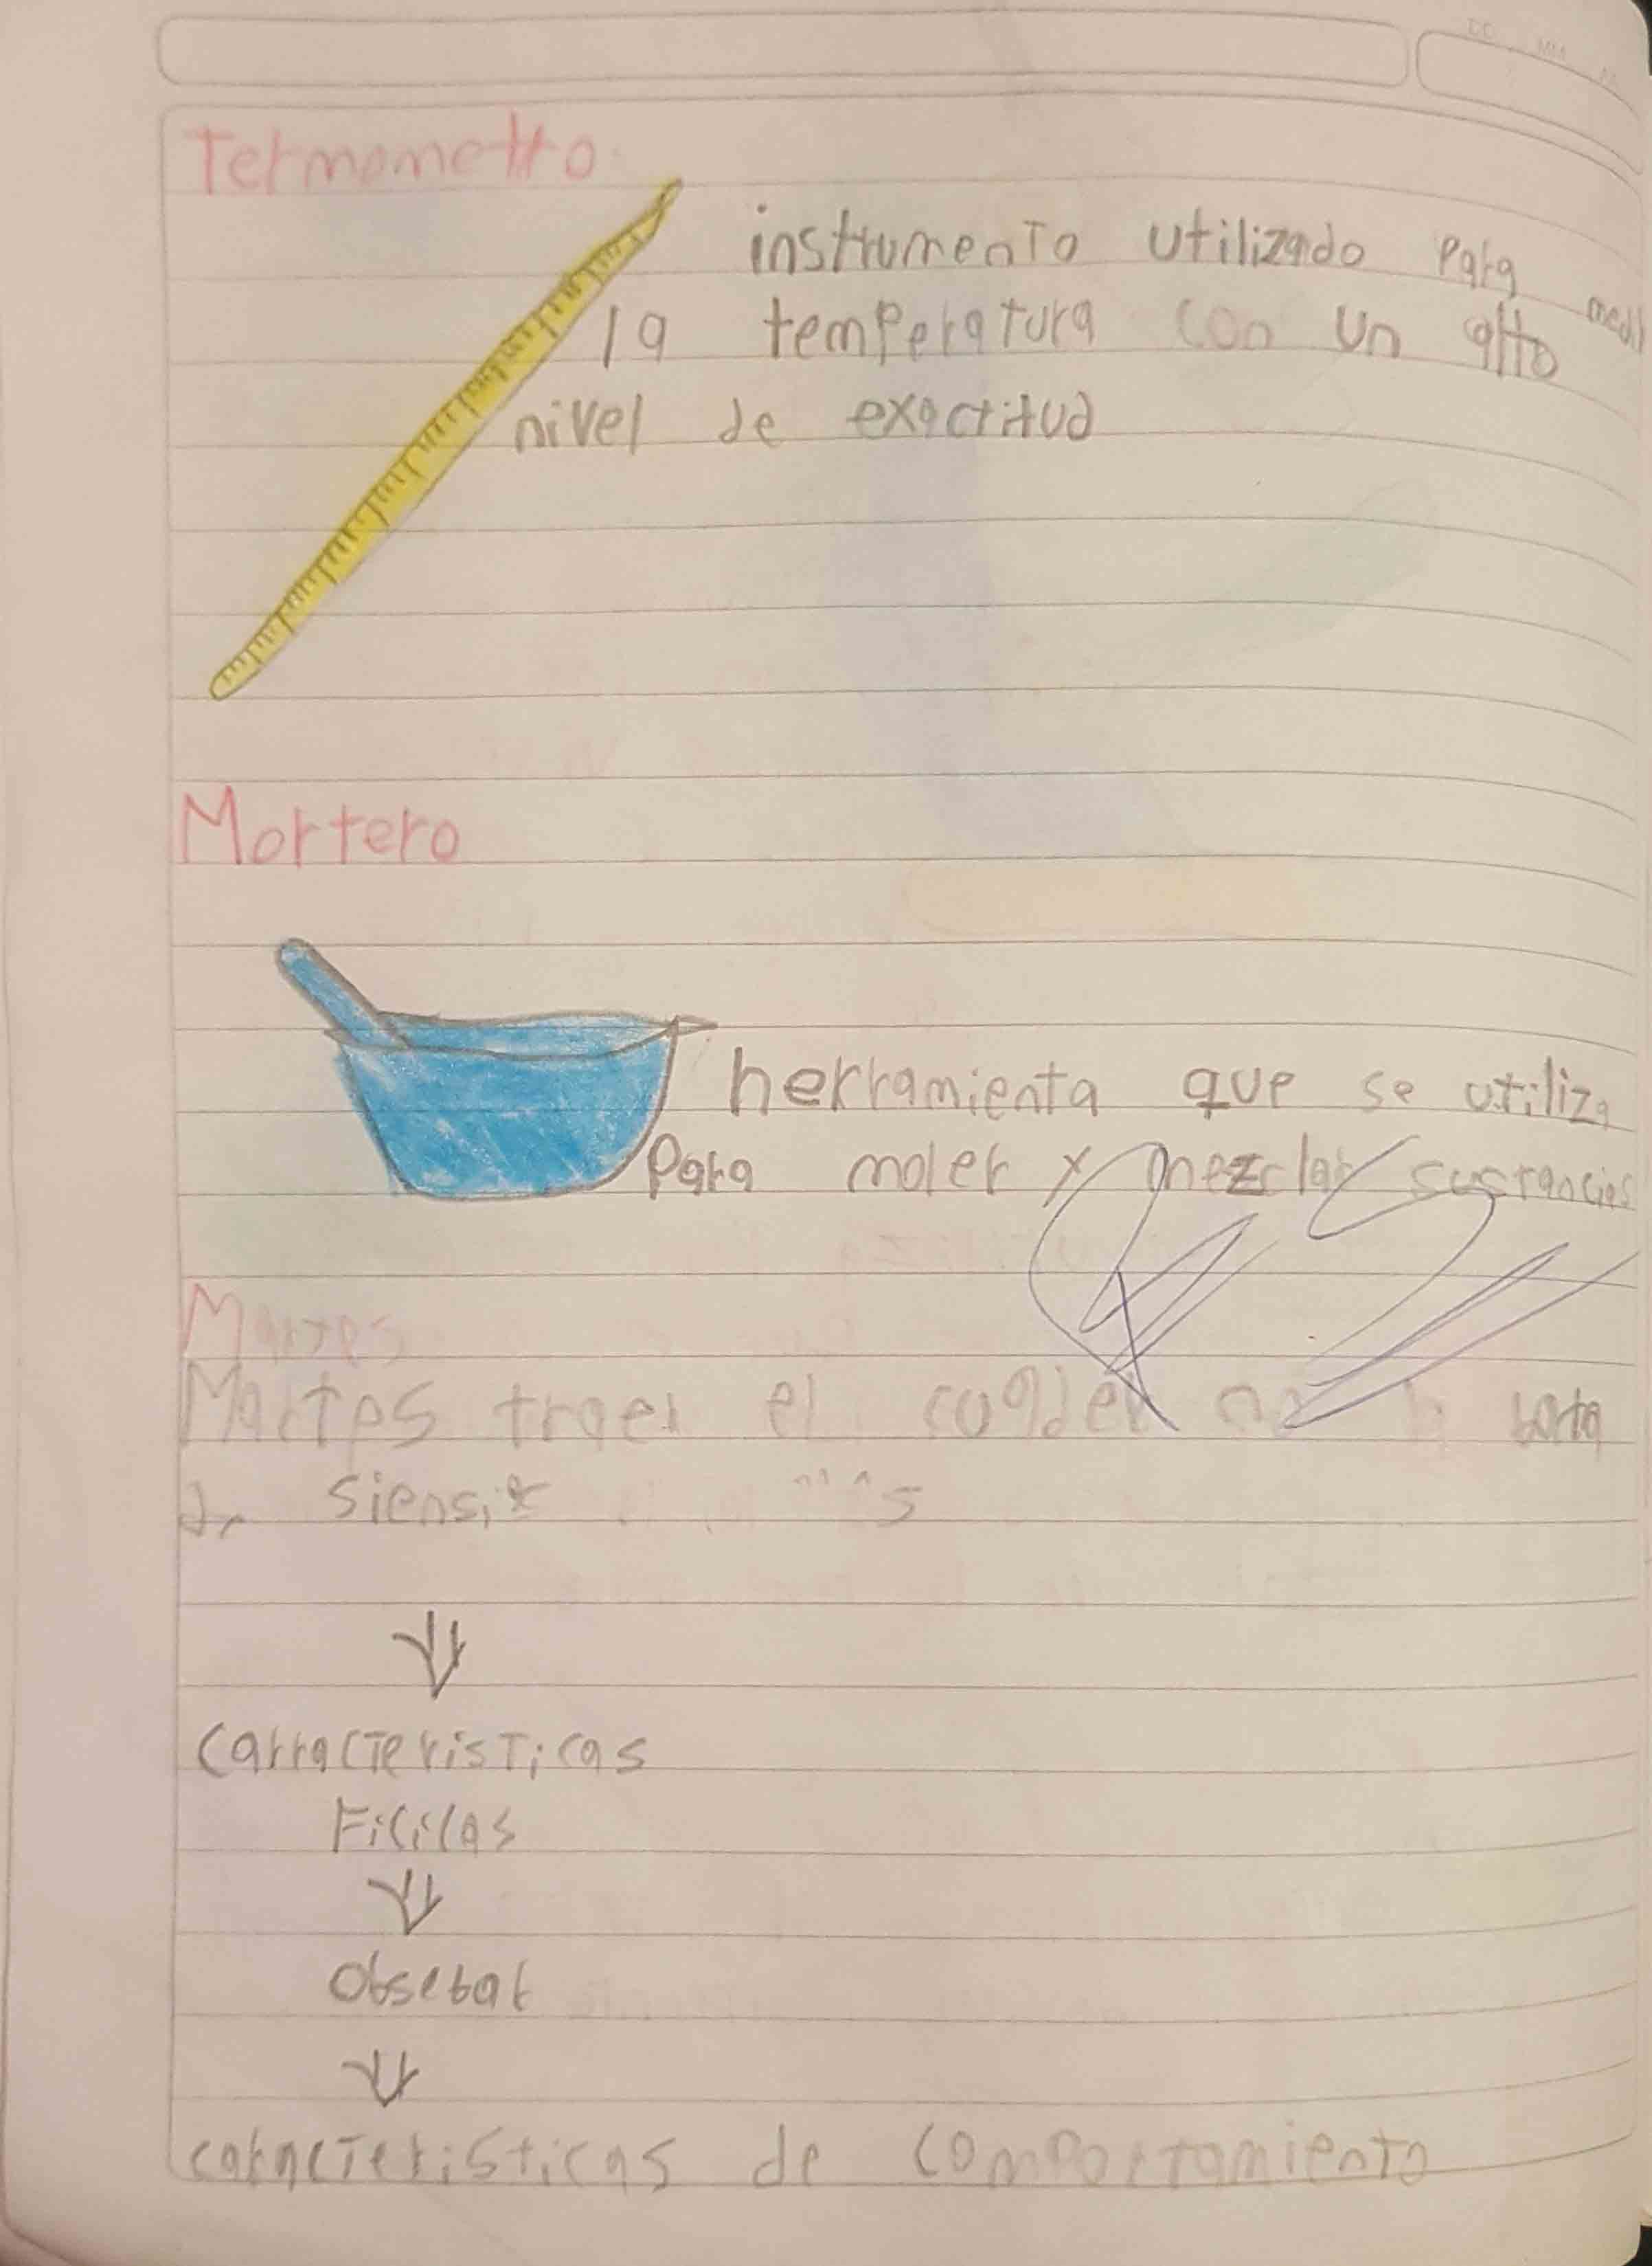 Termometro
instrumento utilizado para medir
la temperatura con un alto
nivel de exactitud
Mortero
herramienta que se utiliza
para moler y mezclar sustancias
Martes
Martes traer el
siensia
Carracteristicas
Ficicas
Obsebar
características de comportamiento